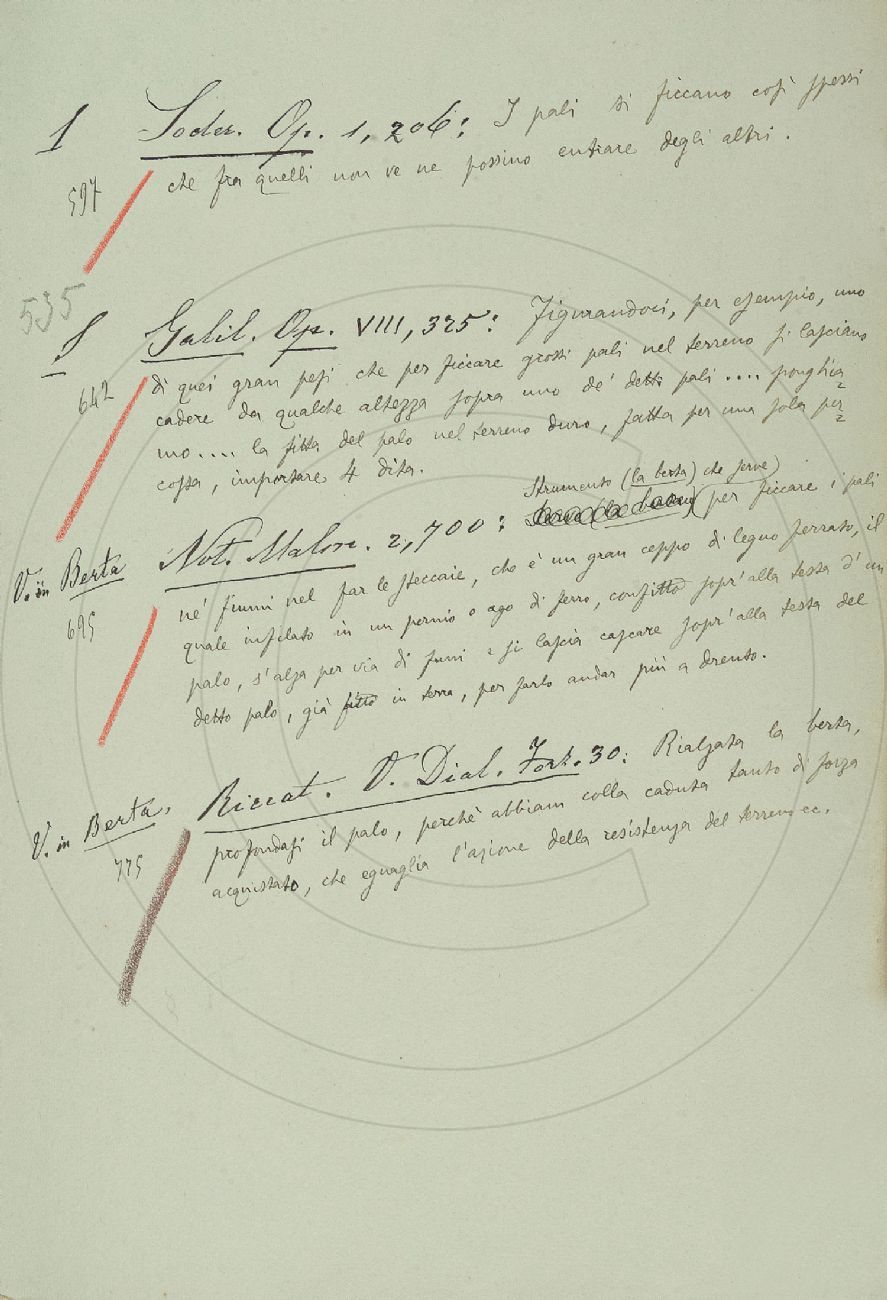 S Soder. Op. 1, 206: I pali si ficcano così spessi
597 che fra quelli non ve ne possino entrare degli altri.
535
S Galil. Op. VIII, 325: Figurandoci, per esempio, uno
642 di quei gran pesi che per ficcare grossi pali nel terreno si lasciano
cadere da qualche altezza sopra uno de' detti pali .... ponghia=
mo .... la fitta del palo nel terreno duro, fatta per una sola per=
cossa, importare 4 dita.
Strumento (la berta) che serve
V. in Berta Not. Malm. 2,700: per ficcare i pali
695 ne' fiumi nel far le steccaie, che è un gran ceppo di legno ferrato, il
quale infilato in un pernio o ago di ferro, confitto sopr'alla testa d'un
palo, s'alza per via di funi e si lascia cascare sopr'alla testa del
detto palo, già fitto in terra, per farlo andar più a drento.
V. in Berta. Riccat. V. Dial. Forz. 30: Rialzata la berta,
775 profondasi il palo, perchè abbiam colla caduta tanto di forza
acquistato, che eguaglia l'azione della resistenza del terreno ec.